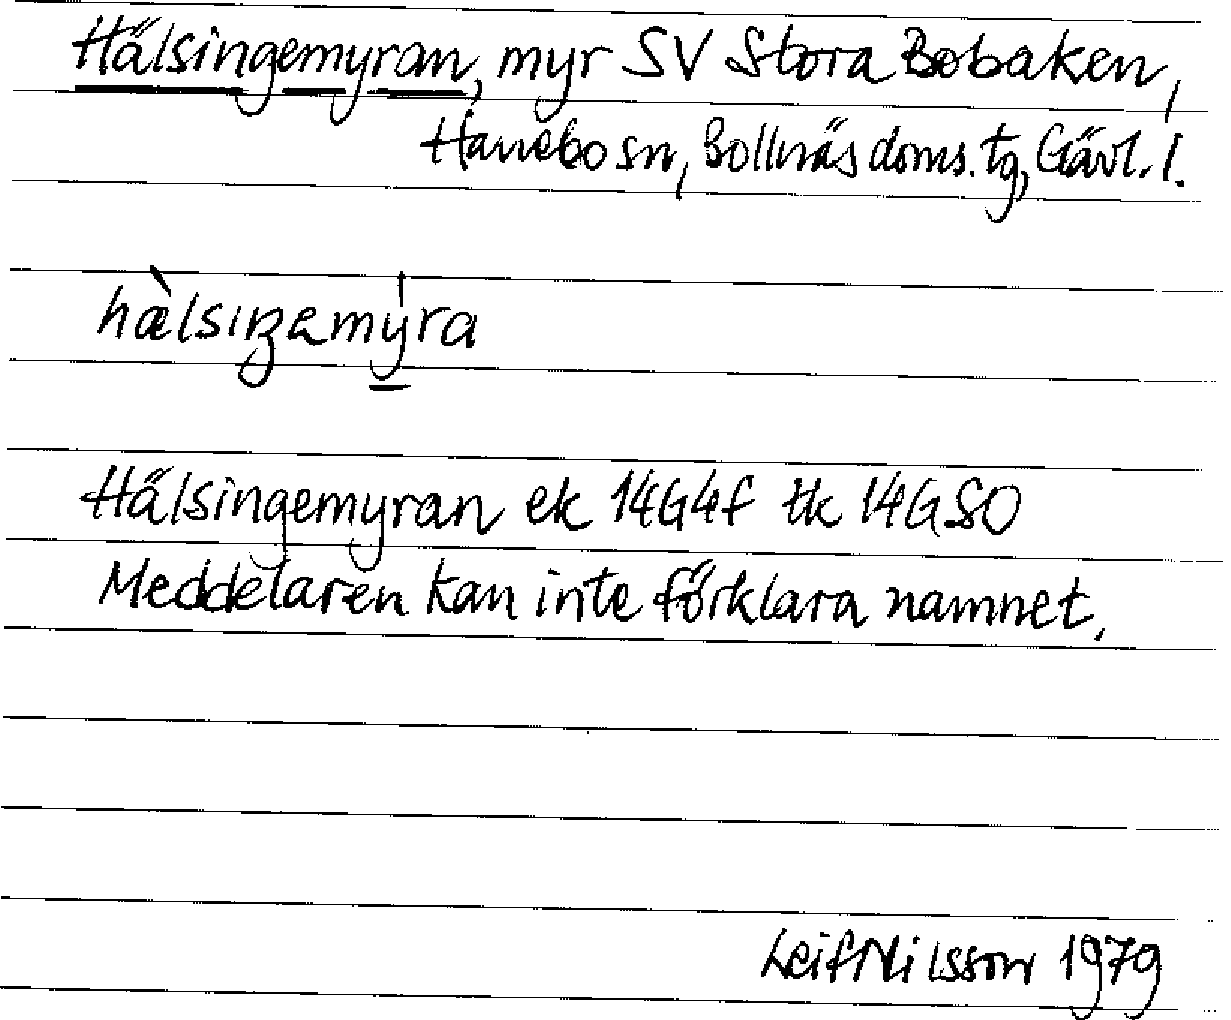 Hälsingemyran, myr SV Stora Bobaken,
Hanebo sn, Bollnäs doms. tg, Gävl. l.
hæ̀lsiŋɜmý̠ra
Hälsingemyran ek 14G4f tk 14GSO
Meddelaren kan inte förklara namnet.
Leif Nilsson 1979